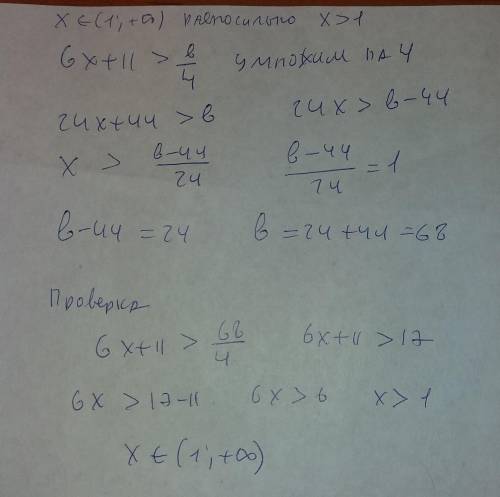 x ∈ (1; +∞) равносильно x > 1
6x + 11 > в/4 умножим на 4
24x + 44 > в 24x > в - 44
x > (в - 44)/24 (в - 44)/24 = 1
в - 44 = 24 в = 24 + 44 = 68
Проверка
6x + 11 > 68/4 6x + 11 > 17
6x > 17 - 11 6x > 6 x > 1
x ∈ (1; +∞)